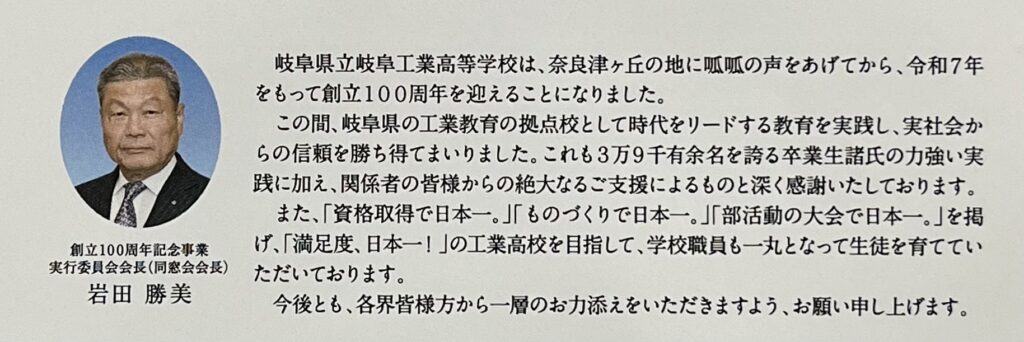 岐阜県立岐阜工業高等学校は、奈良津ヶ丘の地に呱呱の声をあげてから、令和７年
をもって創立１００周年を迎えることになりました。
この間、岐阜県の工業教育の拠点校として時代をリードする教育を実践し、実社会か
らの信頼を勝ち得てまいりました。これも３万９千有余名を誇る卒業生諸氏の力強い実
践に加え、関係者の皆様からの絶大なるご支援によるものと深く感謝いたしております。
また、「資格取得で日本一。」「ものづくりで日本一。」「部活動の大会で日本一。」を掲
げ、「満足度、日本一！」の工業高校を目指して、学校職員も一丸となって生徒を育ててい
ただいております。
今後とも、各界皆様方から一層のお力添えをいただきますよう、お願い申し上げます。
創立100周年記念事業
実行委員会会長（同窓会会長）
岩田 勝美